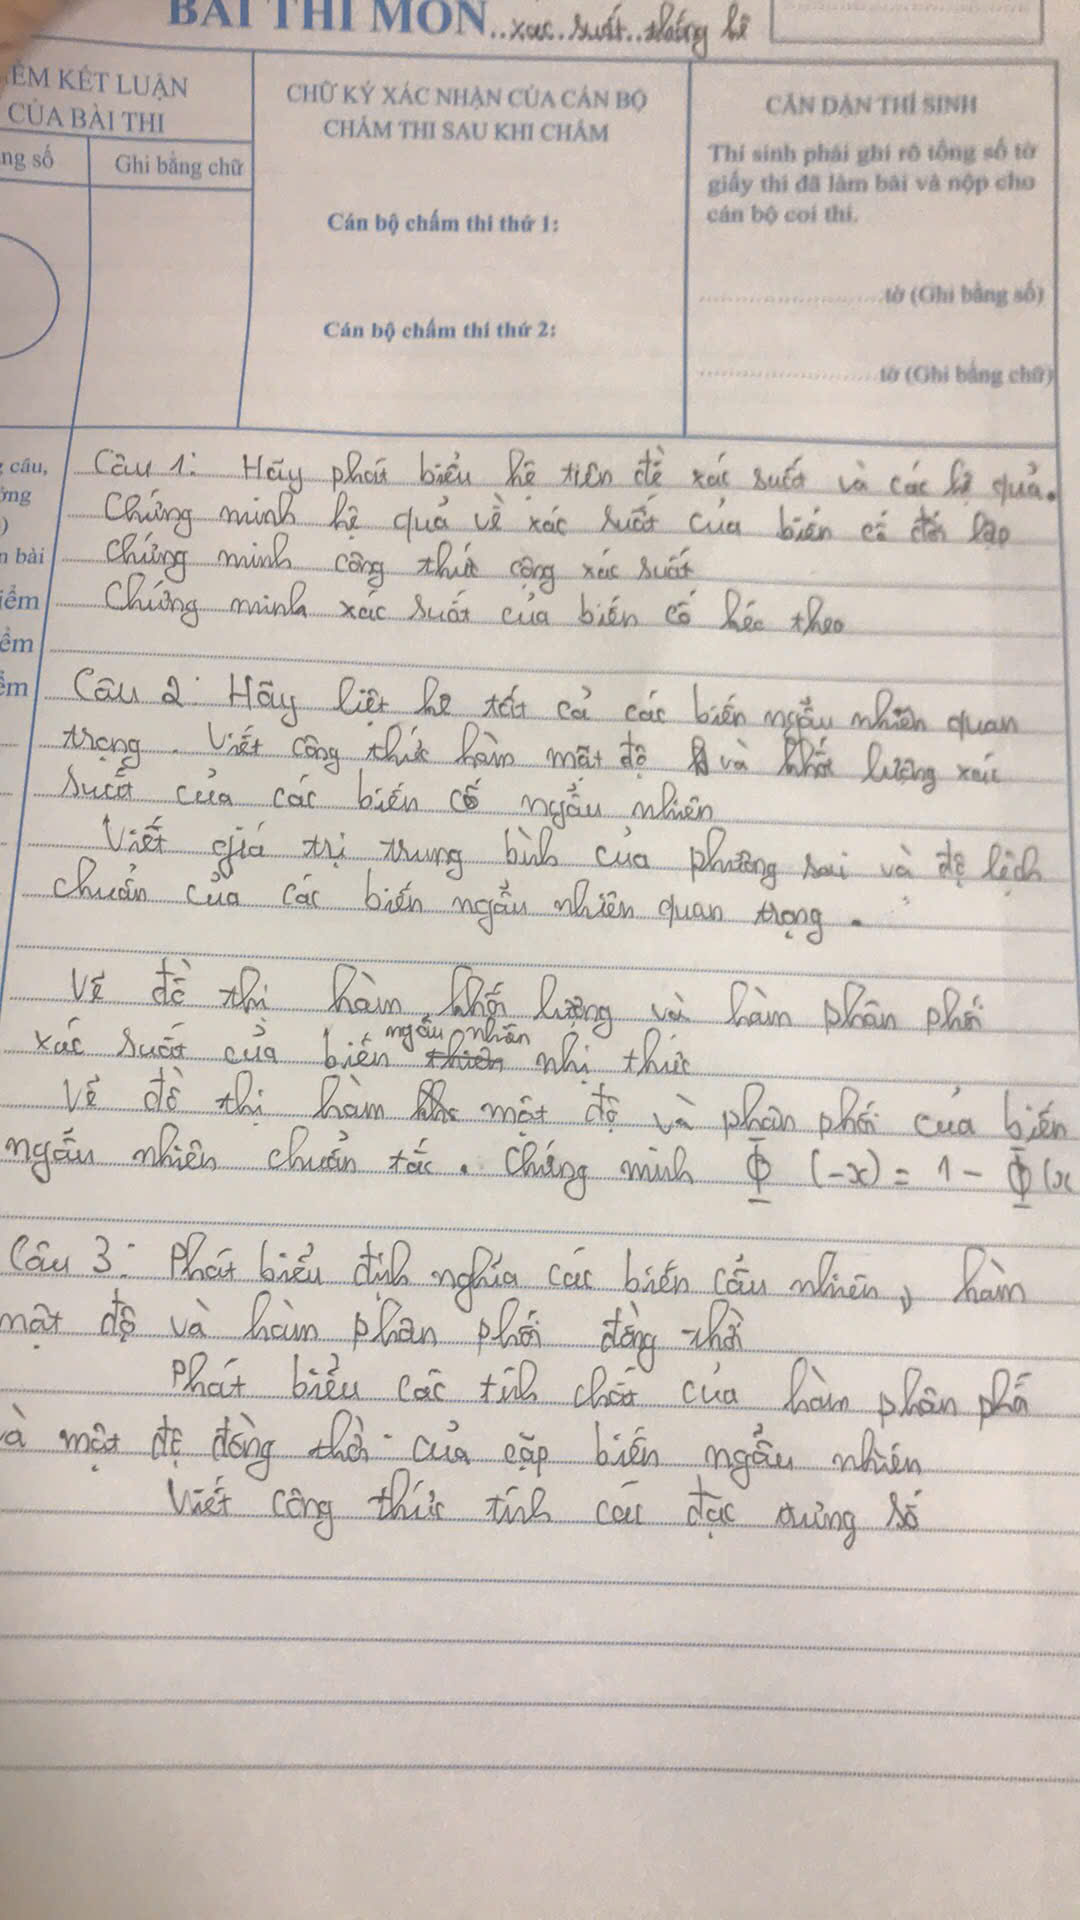 BÀI THI MÔN...xác suất thống kê
ĐIỂM KẾT LUẬN
CỦA BÀI THI
ng số
Ghi bằng chữ
CHỮ KÝ XÁC NHẬN CỦA CÁN BỘ
CHẤM THI SAU KHI CHẤM
Cán bộ chấm thi thứ 1:
Cán bộ chấm thi thứ 2:
CĂN DẶN THÍ SINH
Thí sinh phải ghi rõ tổng số tờ
giấy thi đã làm bài và nộp cho
cán bộ coi thi.
tờ (Ghi bằng số)
tờ (Ghi bằng chữ)
câu,
n bài
Câu 1: Hãy phát biểu hệ tiên đề xác suất và các hệ quả.
Chứng minh hệ quả về xác suất của biến cố đối lập
Chứng minh công thức cộng xác suất
Chứng minh xác suất của biến cố kéo theo
Câu 2: Hãy liệt kê tất cả các biến ngẫu nhiên quan
trọng. Viết công thức hàm mật độ và khối lượng xác
suất của các biến cố ngẫu nhiên
Viết giá trị trung bình của phương sai và độ lệch
chuẩn của các biến ngẫu nhiên quan trọng.
Vẽ đồ thị hàm khối lượng và hàm phân phối
xác suất của biến ngẫu nhiên nhị thức
Vẽ đồ thị hàm mật độ và phân phối của biến
ngẫu nhiên chuẩn tắc. Chứng minh Φ (-x) = 1 - Φ(x
Câu 3: Phát biểu định nghĩa các biến cẩu nhiên, hàm
mật độ và hàm phân phối đồng thời
Phát biểu các tính chất của hàm phân phố
à mật độ đồng thời của cặp biến ngẫu nhiên
Viết công thức tính các đặc trưng số